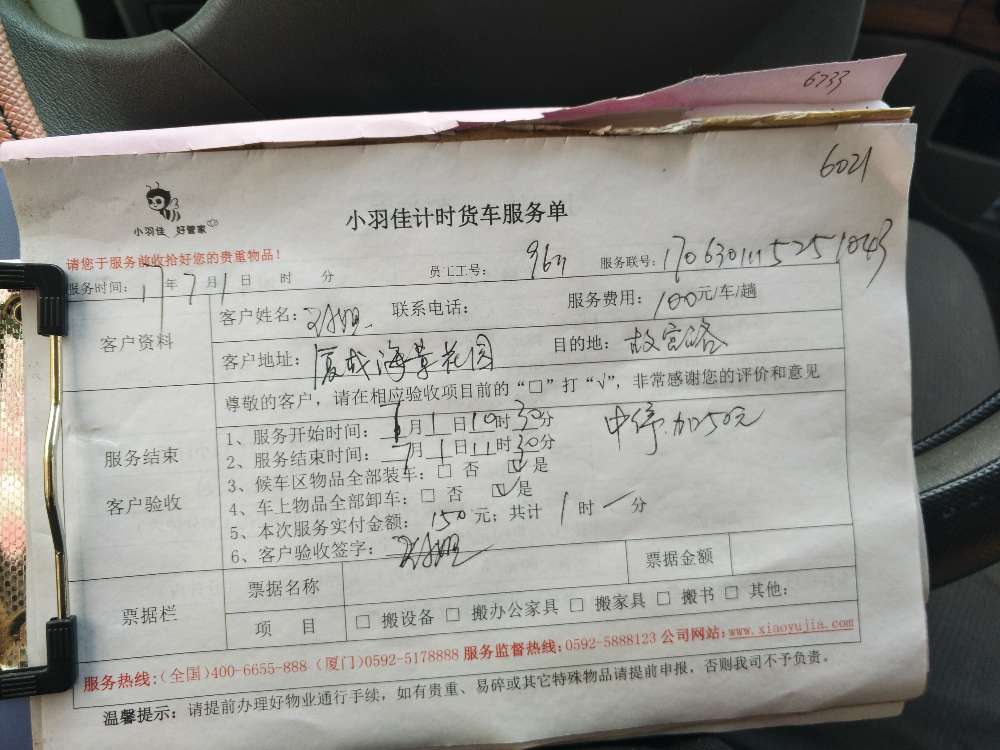 6733
6021
小羽佳 好管家
小羽佳计时货车服务单
请您于服务前收拾好您的贵重物品!
服务时间: 17年7月1日 时 分 员工工号: 服务联号: 170630111525251043
客户资料
客户姓名: 联系电话: 服务费用: 100元/车/趟
客户地址: 海景花园 目的地: 故宫路
尊敬的客户,请在相应验收项目前的“□”打“√”,非常感谢您的评价和意见
服务结束
客户验收
1、服务开始时间: 7月1日10时30分 中停加50元
2、服务结束时间: 7月1日11时30分
3、候车区物品全部装车: □ 否 ☑是
4、车上物品全部卸车: □ 否 ☑是
5、本次服务实付金额: 150元; 共计 1时一分
6、客户验收签字:
票据栏
票据名称 票据金额
项 目 □ 搬设备 □ 搬办公家具 □ 搬家具 □ 搬书 □ 其他:
服务热线:(全国)400-6655-888 (厦门)0592-5178888 服务监督热线:0592-5888123 公司网站:www.xiaoyujia.com
温馨提示: 请提前办理好物业通行手续,如有贵重、易碎或其它特殊物品请提前申报,否则我司不予负责。